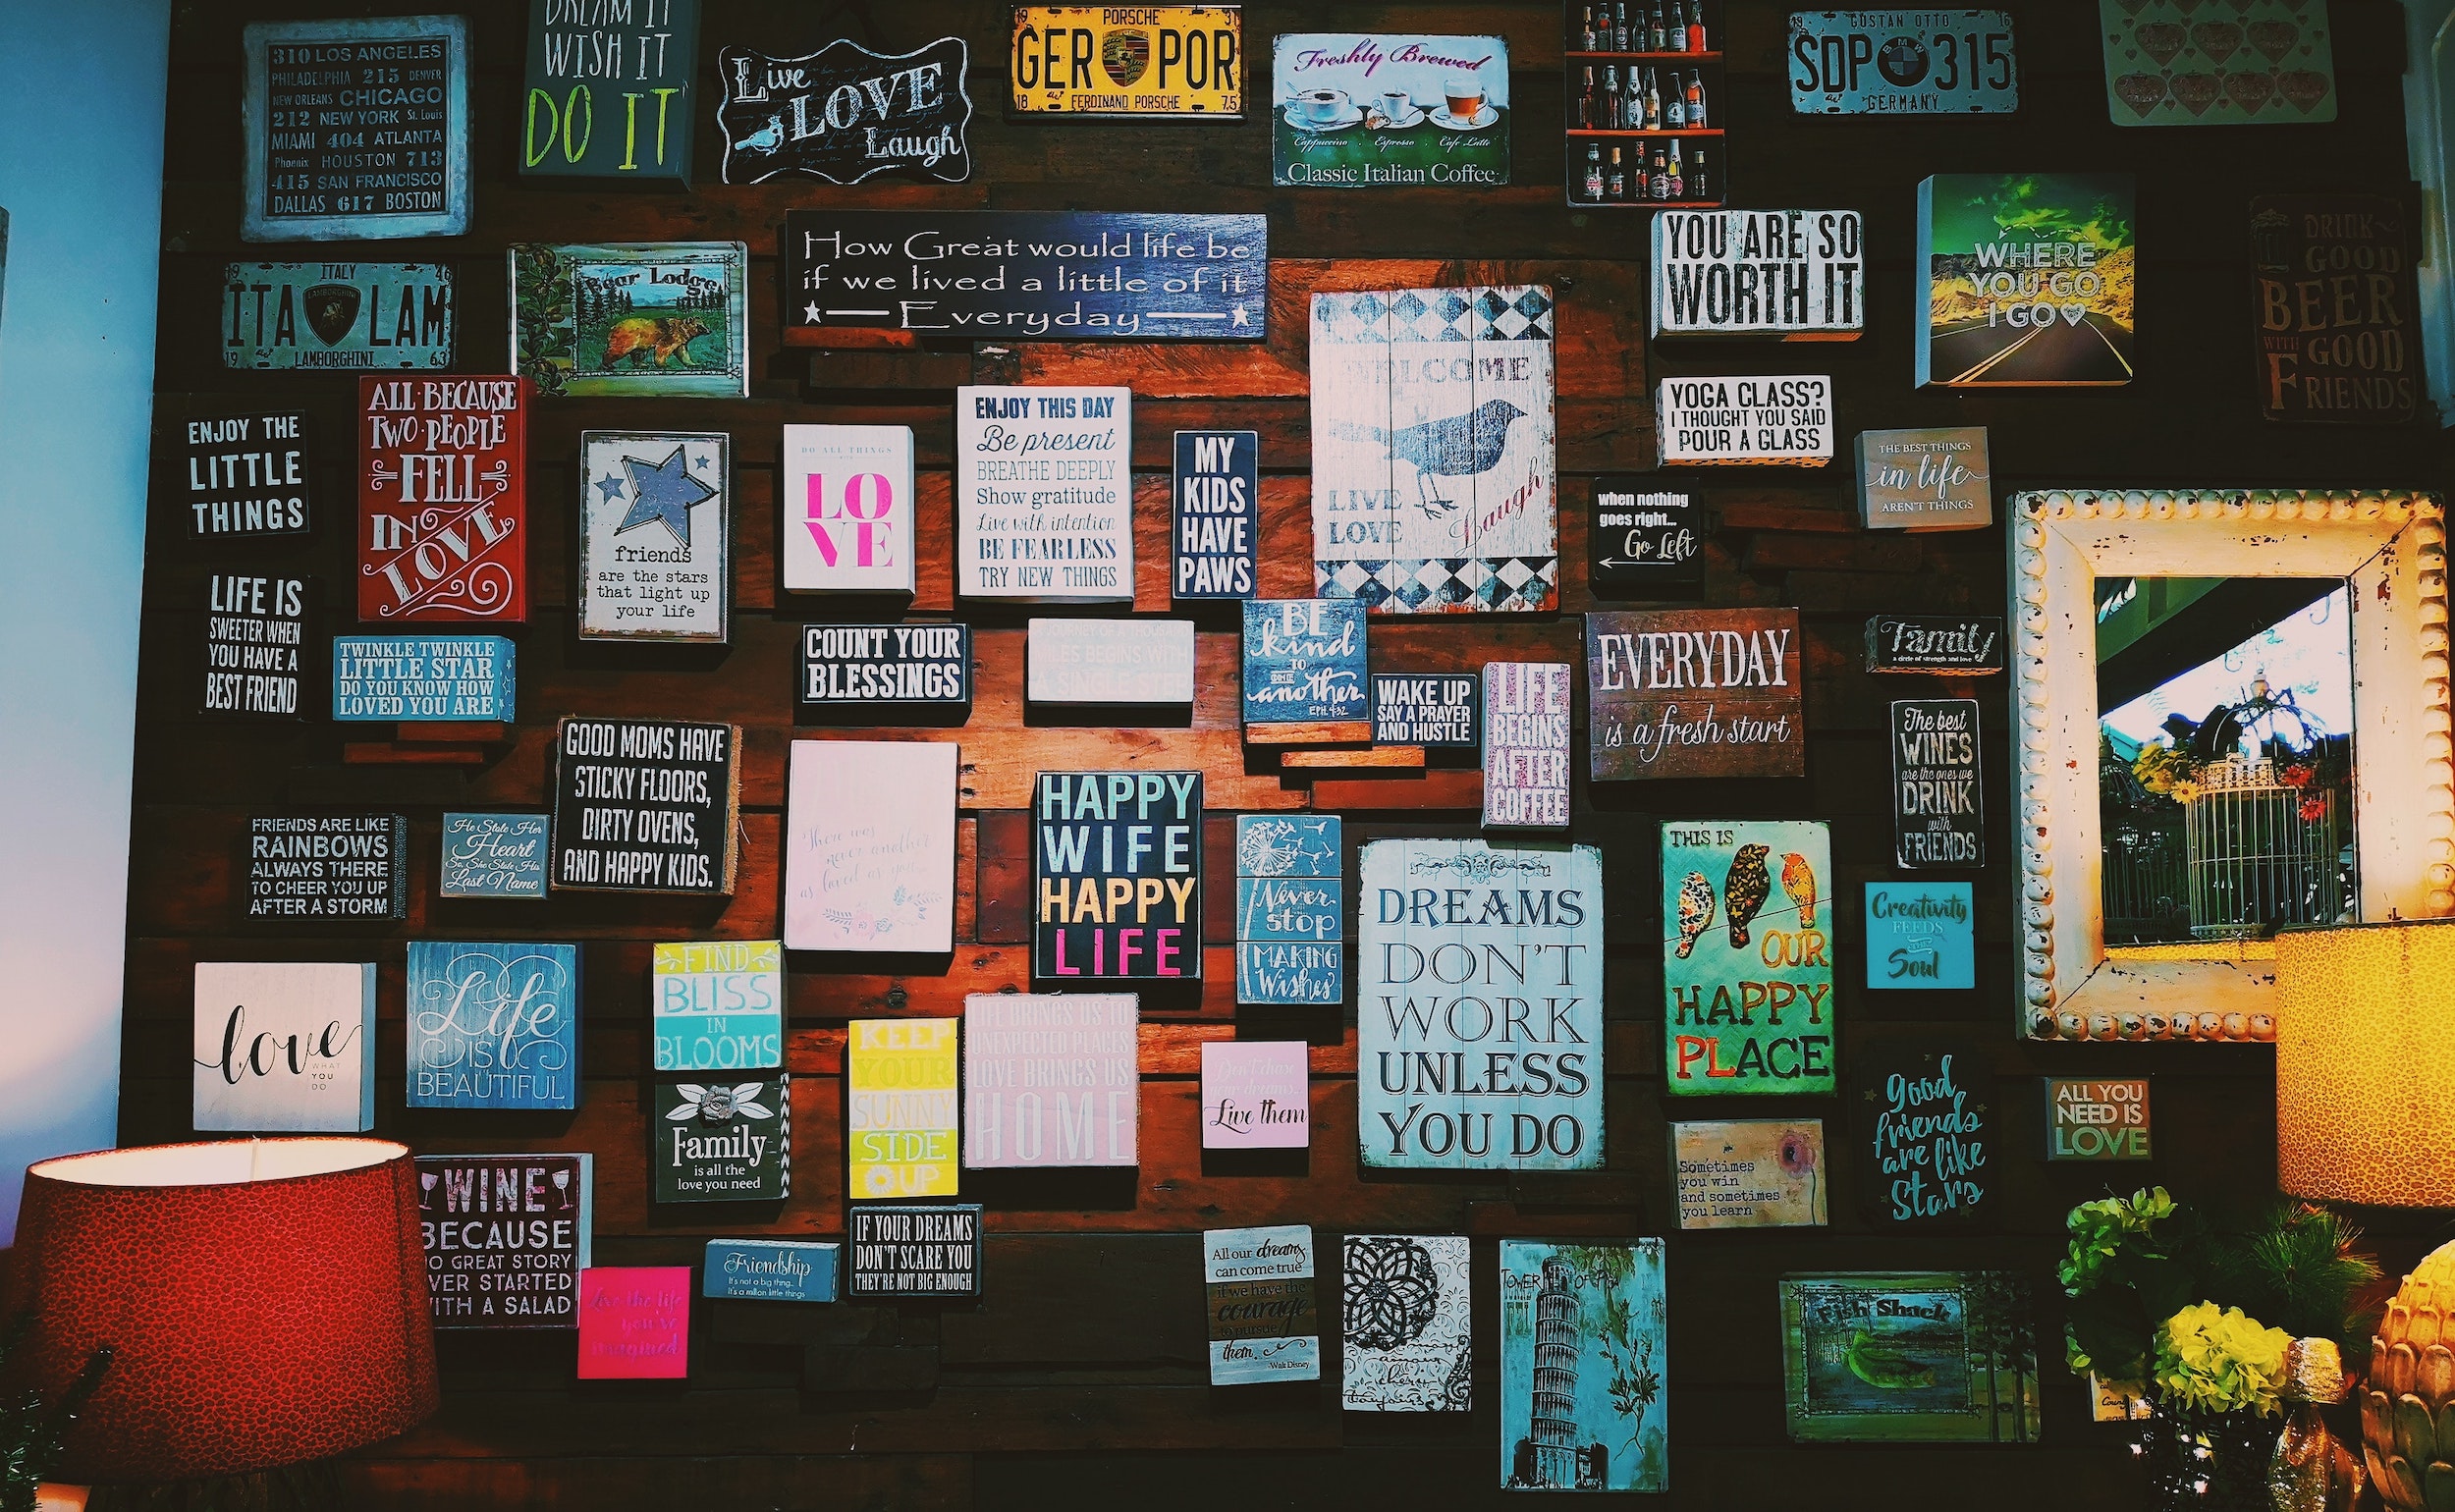 310 LOS ANGELES
PHILADELPHIA 215 DENVER
NEW ORLEANS CHICAGO
212 NEW YORK St. Louis
MIAMI 404 ATLANTA
Phoenix HOUSTON 713
415 SAN FRANCISCO
DALLAS 617 BOSTON
DREAM IT
WISH IT
DO IT
Live
LOVE
Laugh
19 PORSCHE 31
GER POR
18 FERDINAND PORSCHE 75
Freshly Brewed
Cappuccino . Espresso . Cafe Latte
Classic Italian Coffee
19 GUSTAN OTTO 16
SDP BMW 315
GERMANY
19 ITALY 46
ITA LAMBORGHINI LAM
19 LAMBORGHINI 63
Bear Lodge
How Great would life be
if we lived a little of it
Everyday
YOU ARE SO
WORTH IT
WHERE
YOU GO
I GO
DRINK
GOOD
BEER
WITH GOOD
FRIENDS
ENJOY THE
LITTLE
THINGS
ALL BECAUSE
TWO PEOPLE
FELL
IN
LOVE
friends
are the stars
that light up
your life
DO ALL THINGS
LO
VE
ENJOY THIS DAY
Be present
BREATHE DEEPLY
Show gratitude
Live with intention
BE FEARLESS
TRY NEW THINGS
MY
KIDS
HAVE
PAWS
WELCOME
LIVE
LOVE
Laugh
YOGA CLASS?
I THOUGHT YOU SAID
POUR A GLASS
THE BEST THINGS
in life
AREN'T THINGS
when nothing
goes right...
Go Left
LIFE IS
SWEETER WHEN
YOU HAVE A
BEST FRIEND
TWINKLE TWINKLE
LITTLE STAR
DO YOU KNOW HOW
LOVED YOU ARE
COUNT YOUR
BLESSINGS
MILES BEGINS WITH
A SINGLE STEP
BE
kind
TO
ONE
another
EPH. 4:32
WAKE UP
SAY A PRAYER
AND HUSTLE
LIFE
BEGINS
AFTER
COFFEE
EVERYDAY
is a fresh start
Family
a circle of strength and love
The best
WINES
are the ones we
DRINK
with
FRIENDS
GOOD MOMS HAVE
STICKY FLOORS,
DIRTY OVENS,
AND HAPPY KIDS.
FRIENDS ARE LIKE
RAINBOWS
ALWAYS THERE
TO CHEER YOU UP
AFTER A STORM
He Stole Her
Heart
So She Stole His
Last Name
There was
never another
as loved as you
HAPPY
WIFE
HAPPY
LIFE
Never
stop
MAKING
Wishes
DREAMS
DON'T
WORK
UNLESS
YOU DO
THIS IS
OUR
HAPPY
PLACE
Creativity
FEEDS
THE
Soul
love
WHAT
YOU
DO
Life
IS
BEAUTIFUL
FIND
BLISS
IN
BLOOMS
Family
is all the
love you need
KEEP
YOUR
SUNNY
SIDE
UP
LIFE BRINGS US TO
UNEXPECTED PLACES
LOVE BRINGS US
HOME
Don't chase
your dreams
Live them
Sometimes
you win
and sometimes
you learn
Good
friends
are like
Stars
ALL YOU
NEED IS
LOVE
WINE
BECAUSE
NO GREAT STORY
EVER STARTED
WITH A SALAD
Live the life
you've
imagined
Friendship
It's not a big thing...
It's a million little things
IF YOUR DREAMS
DON'T SCARE YOU
THEY'RE NOT BIG ENOUGH
All our dreams
can come true
if we have the
courage
to pursue
them.
-Walt Disney
TOWER OF PISA
Fish Shack